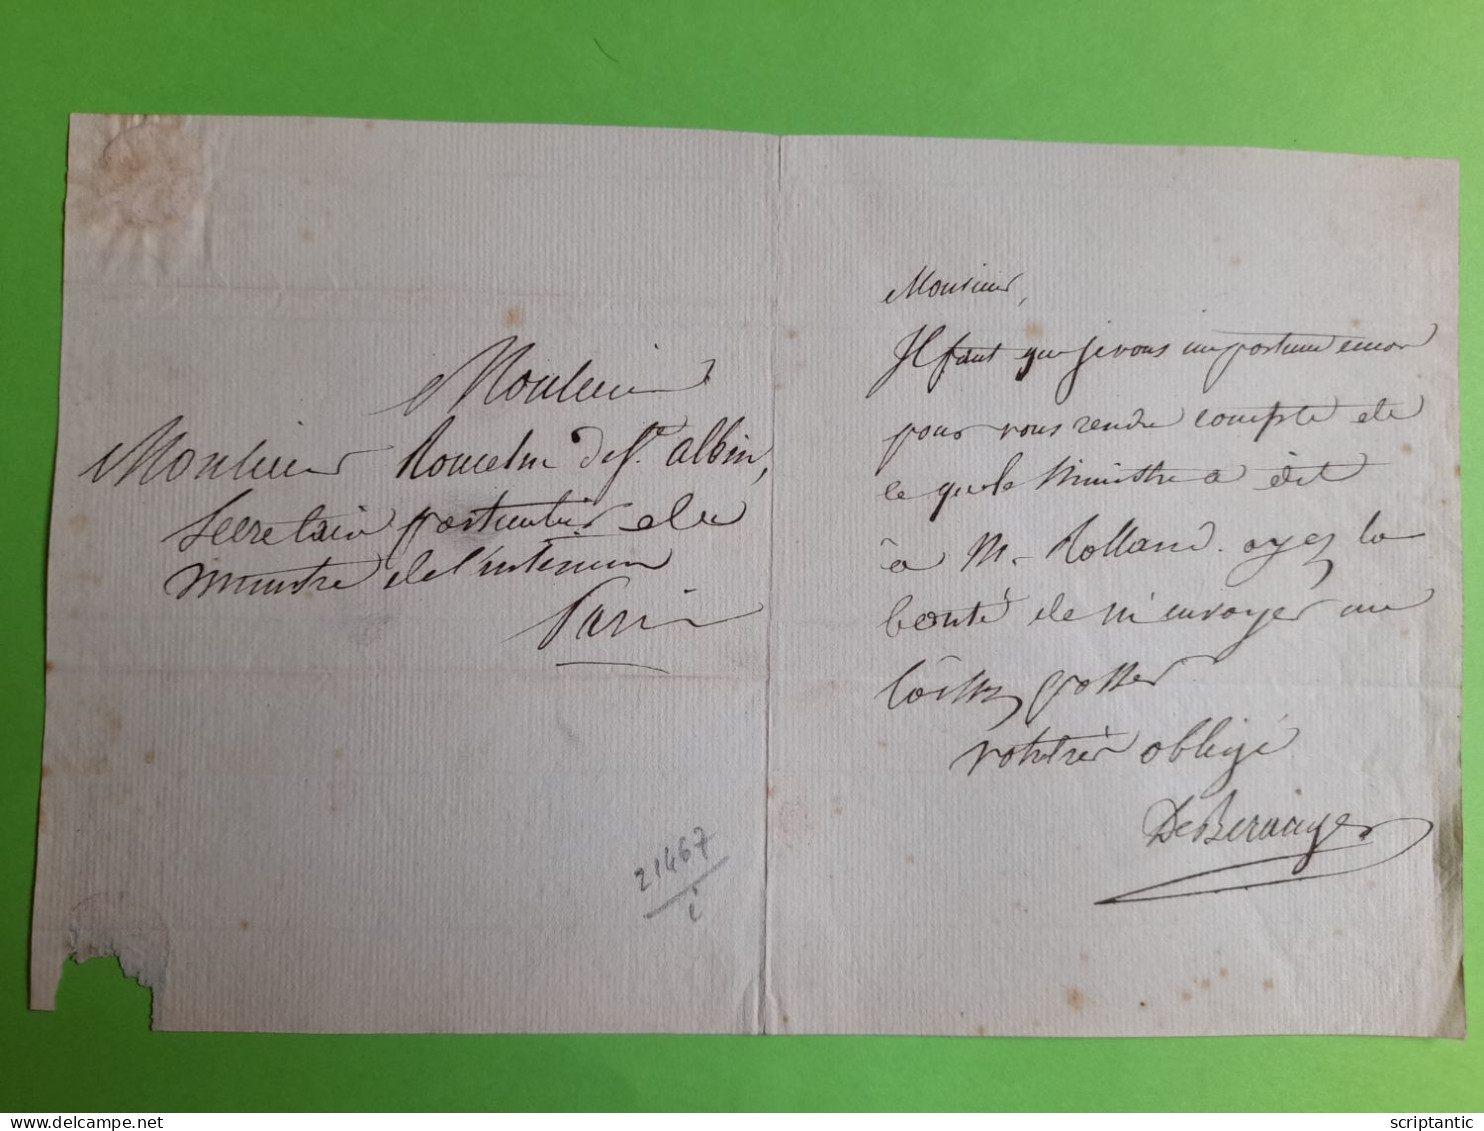 Monsieur
Monsieur Rousselin de St. albin,
Secretaire particulier du
ministre de l'interieur
Paris
21467
i
Monsieur,
Il faut que je vous importune encor
pour vous rendre compte de
ce que le Ministre a dit
à M. Rolland. ayez la
bonté de m'envoyer un
laissez passer
votre très obligé
De Beraager
scriptantic